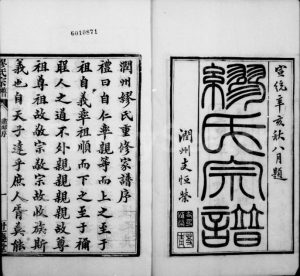 6010871
宣統辛亥秋八月題
繆氏宗譜
潤州支恒榮
潤州繆氏重修家譜序
禮曰自仁率親等而上之至于
祖自義率祖順而下之至于禰
聖人之道不外親親親親故尊
祖尊祖故敬宗敬宗故收族斯
義也自天子達乎庶人胥莫能